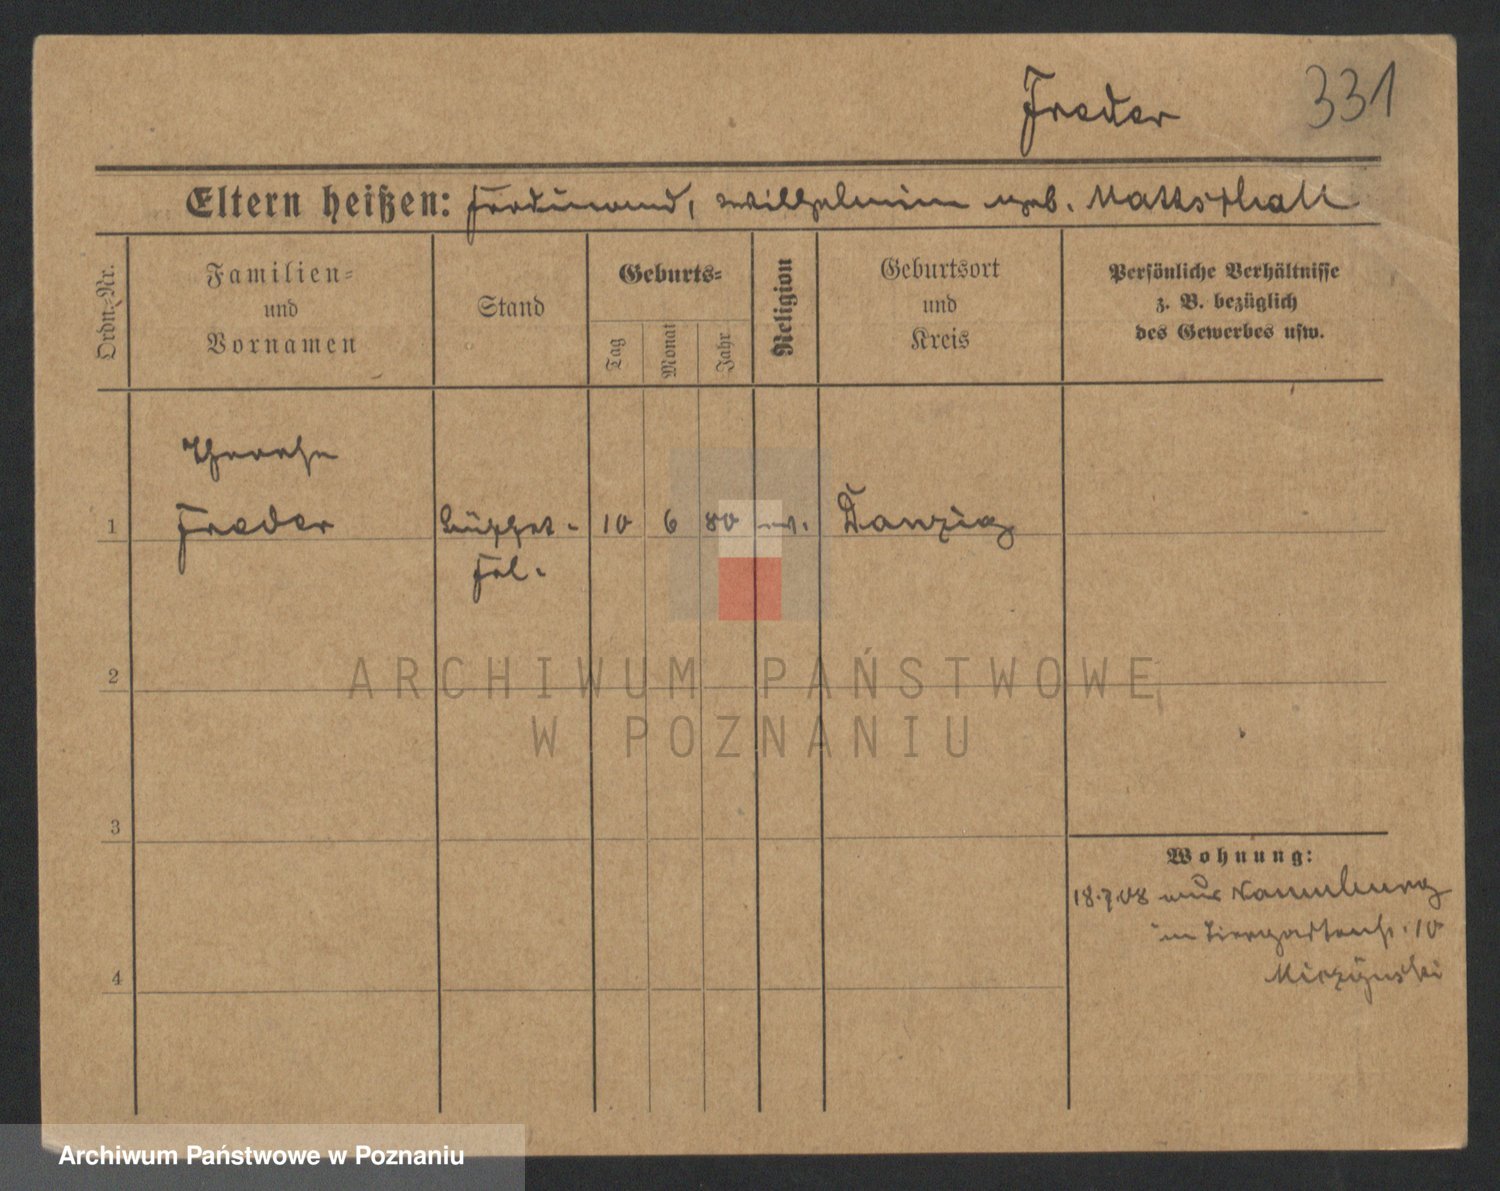 Freder 331
Eltern heißen: Ferdinand, Wilhelmine geb.
Ordn.-Nr.
Familien-
und
Vornamen
Stand
Geburts-
Tag
Monat
Jahr
Religion
Geburtsort
und
Kreis
Persönliche Verhältnisse
z. B. bezüglich
des Gewerbes usw.
Therese
1 Freder Büffet- 10 6 80 ev. Danzig
Frl.
2
3
4
Wohnung:
18.7.08 aus
in Tiergartenstr. 10
ARCHIWUM PAŃSTWOWE
W POZNANIU
Archiwum Państwowe w Poznaniu